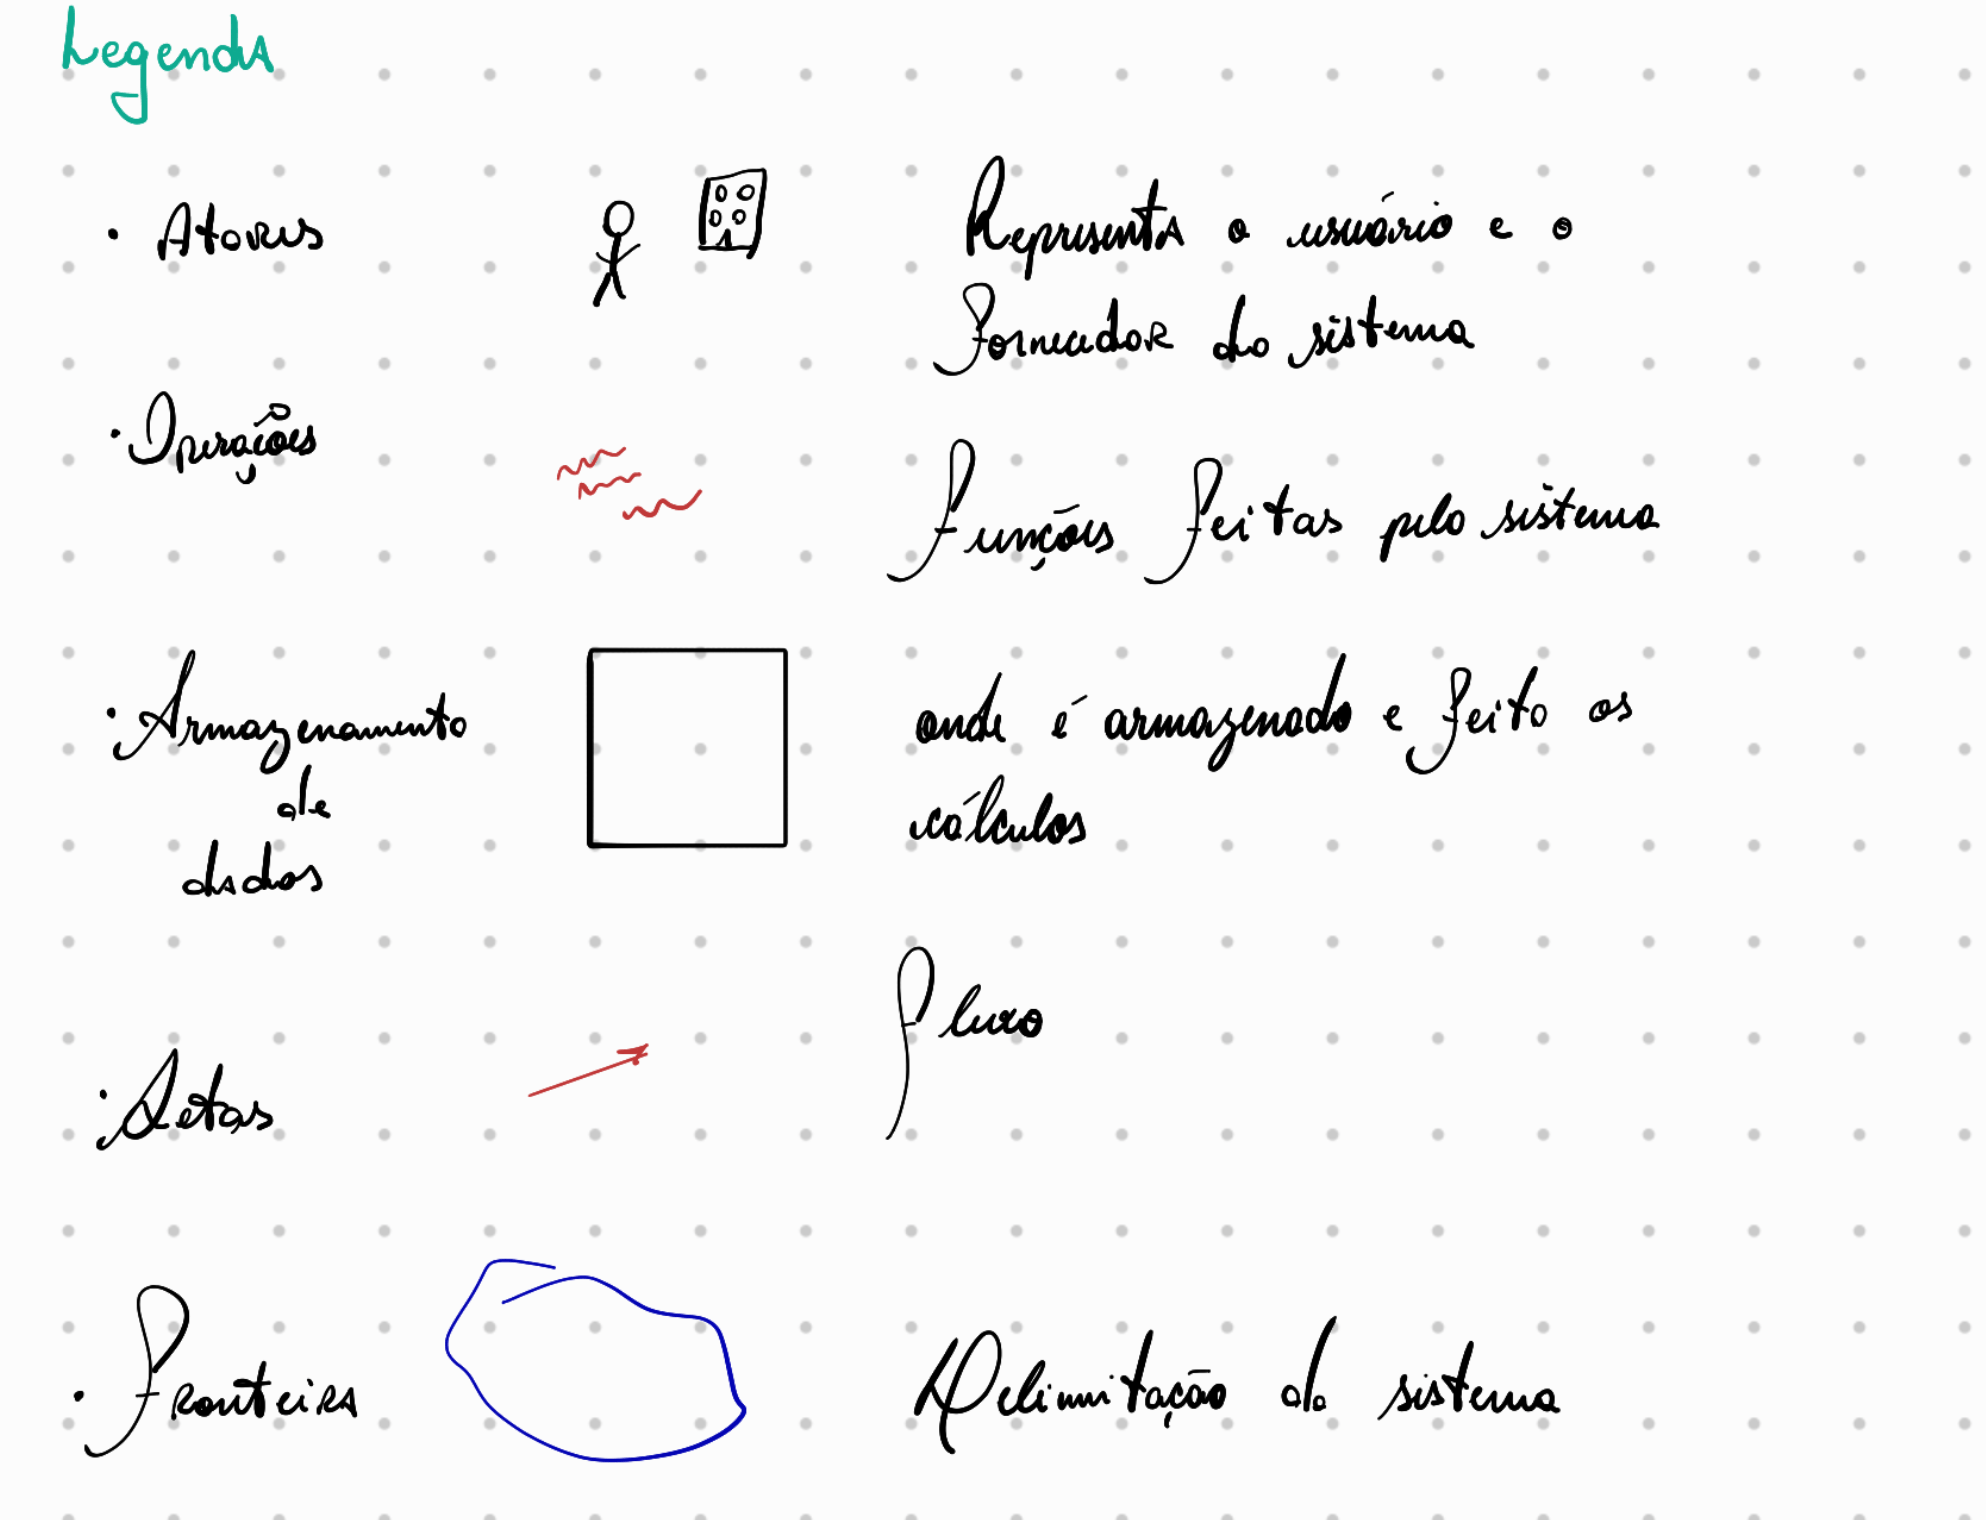 Legenda
• Atores Representa o usuário e o
fornecedor do sistema
• Operações
Funções feitas pelo sistema
• Armazenamento onde é armazenado e feito os
de cálculos
dados
Fluxo
• Setas
• Fronteira Delimitação do sistema